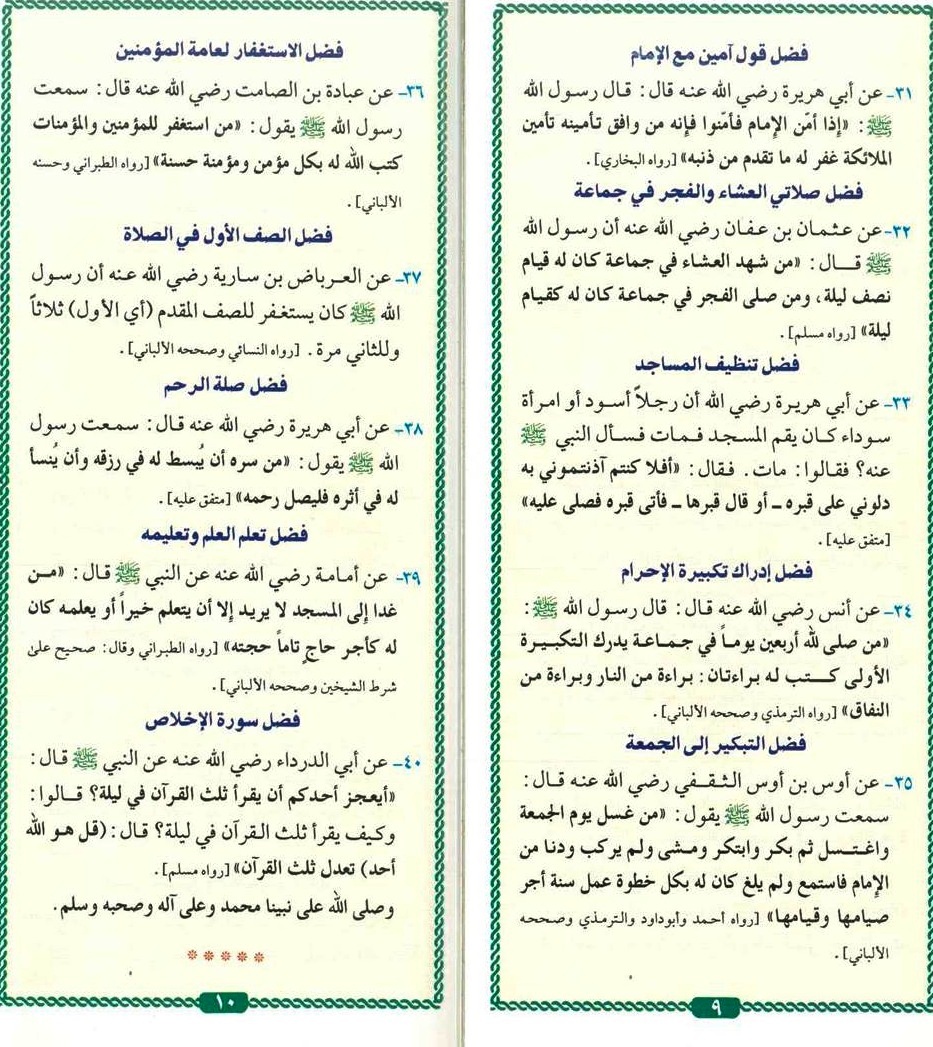 فضل قول آمين مع الإمام
٣١- عن أبي هريرة رضي الله عنه قال: قال رسول الله
ﷺ: «إذا أمّن الإمام فأمّنوا فإنه من وافق تأمينه تأمين
الملائكة غفر له ما تقدم من ذنبه» [رواه البخاري].
فضل صلاتي العشاء والفجر في جماعة
٣٢- عن عثمان بن عفان رضي الله عنه أن رسول الله
ﷺ قال: «من شهد العشاء في جماعة كان له قيام
نصف ليلة، ومن صلى الفجر في جماعة كان له كقيام
ليلة» [رواه مسلم].
فضل تنظيف المساجد
٣٣- عن أبي هريرة رضي الله أن رجلاً أسود أو امرأة
سوداء كان يقم المسجد فمات فسأل النبي ﷺ
عنه؟ فقالوا: مات. فقال: «أفلا كنتم آذنتموني به
دلوني على قبره ـ أو قال قبرها ـ فأتى قبره فصلى عليه»
[متفق عليه].
فضل إدراك تكبيرة الإحرام
٣٤- عن أنس رضي الله عنه قال: قال رسول الله ﷺ:
«من صلى لله أربعين يوماً في جماعة يدرك التكبيرة
الأولى كتب له براءتان: براءة من النار وبراءة من
النفاق» [رواه الترمذي وصححه الألباني].
فضل التبكير إلى الجمعة
٣٥- عن أوس بن أوس الثقفي رضي الله عنه قال:
سمعت رسول الله ﷺ يقول: «من غسل يوم الجمعة
واغتسل ثم بكر وابتكر ومشى ولم يركب ودنا من
الإمام فاستمع ولم يلغ كان له بكل خطوة عمل سنة أجر
صيامها وقيامها» [رواه أحمد وأبوداود والترمذي وصححه
الألباني].
٩
فضل الاستغفار لعامة المؤمنين
٣٦- عن عبادة بن الصامت رضي الله عنه قال: سمعت
رسول الله ﷺ يقول: «من استغفر للمؤمنين والمؤمنات
كتب الله له بكل مؤمن ومؤمنة حسنة» [رواه الطبراني وحسنه
الألباني].
فضل الصف الأول في الصلاة
٣٧- عن العرباض بن سارية رضي الله عنه أن رسول
الله ﷺ كان يستغفر للصف المقدم (أي الأول) ثلاثاً
وللثاني مرة. [رواه النسائي وصححه الألباني].
فضل صلة الرحم
٣٨- عن أبي هريرة رضي الله عنه قال: سمعت رسول
الله ﷺ يقول: «من سره أن يُبسط له في رزقه وأن يُنسأ
له في أثره فليصل رحمه» [متفق عليه].
فضل تعلم العلم وتعليمه
٣٩- عن أمامة رضي الله عنه عن النبي ﷺ قال: «من
غدا إلى المسجد لا يريد إلا أن يتعلم خيراً أو يعلمه كان
له كأجر حاجٍ تاماً حجته» [رواه الطبراني وقال: صحيح على
شرط الشيخين وصححه الألباني].
فضل سورة الإخلاص
٤٠- عن أبي الدرداء رضي الله عنه عن النبي ﷺ قال:
«أيعجز أحدكم أن يقرأ ثلث القرآن في ليلة؟ قالوا:
وكيف يقرأ ثلث القرآن في ليلة؟ قال: (قل هو الله
أحد) تعدل ثلث القرآن» [رواه مسلم].
وصلى الله على نبينا محمد وعلى آله وصحبه وسلم.
١٠